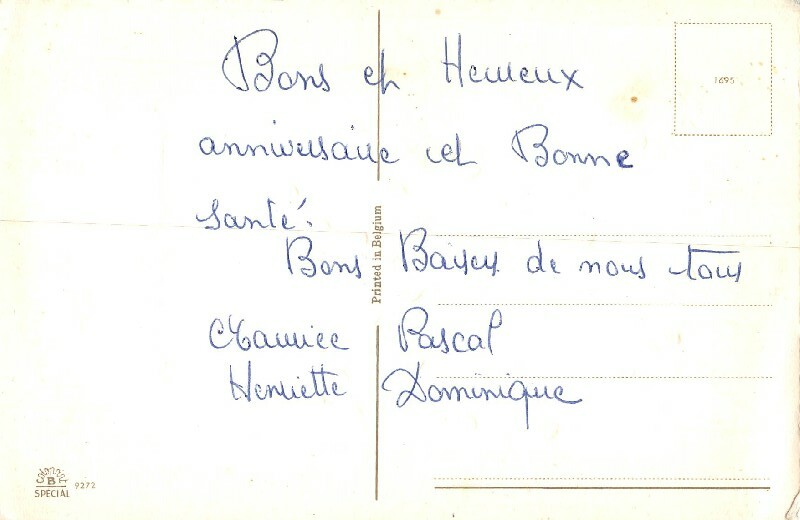 Bons et Heureux
1695
anniversaire et Bonne
santé.
Bons Baisers de nous tous
Printed in Belgium
Maurice Pascal
Henriette Dominique
B
SPECIAL 9272